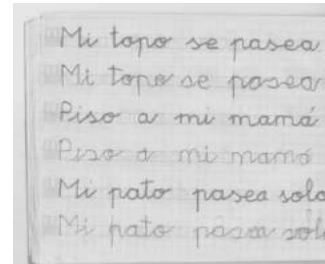 Mi topo se pasea
Mi topo se pasea
Piso a mi mamá
Piso a mi mamá
Mi pato pasea solo
Mi pato pasea solo